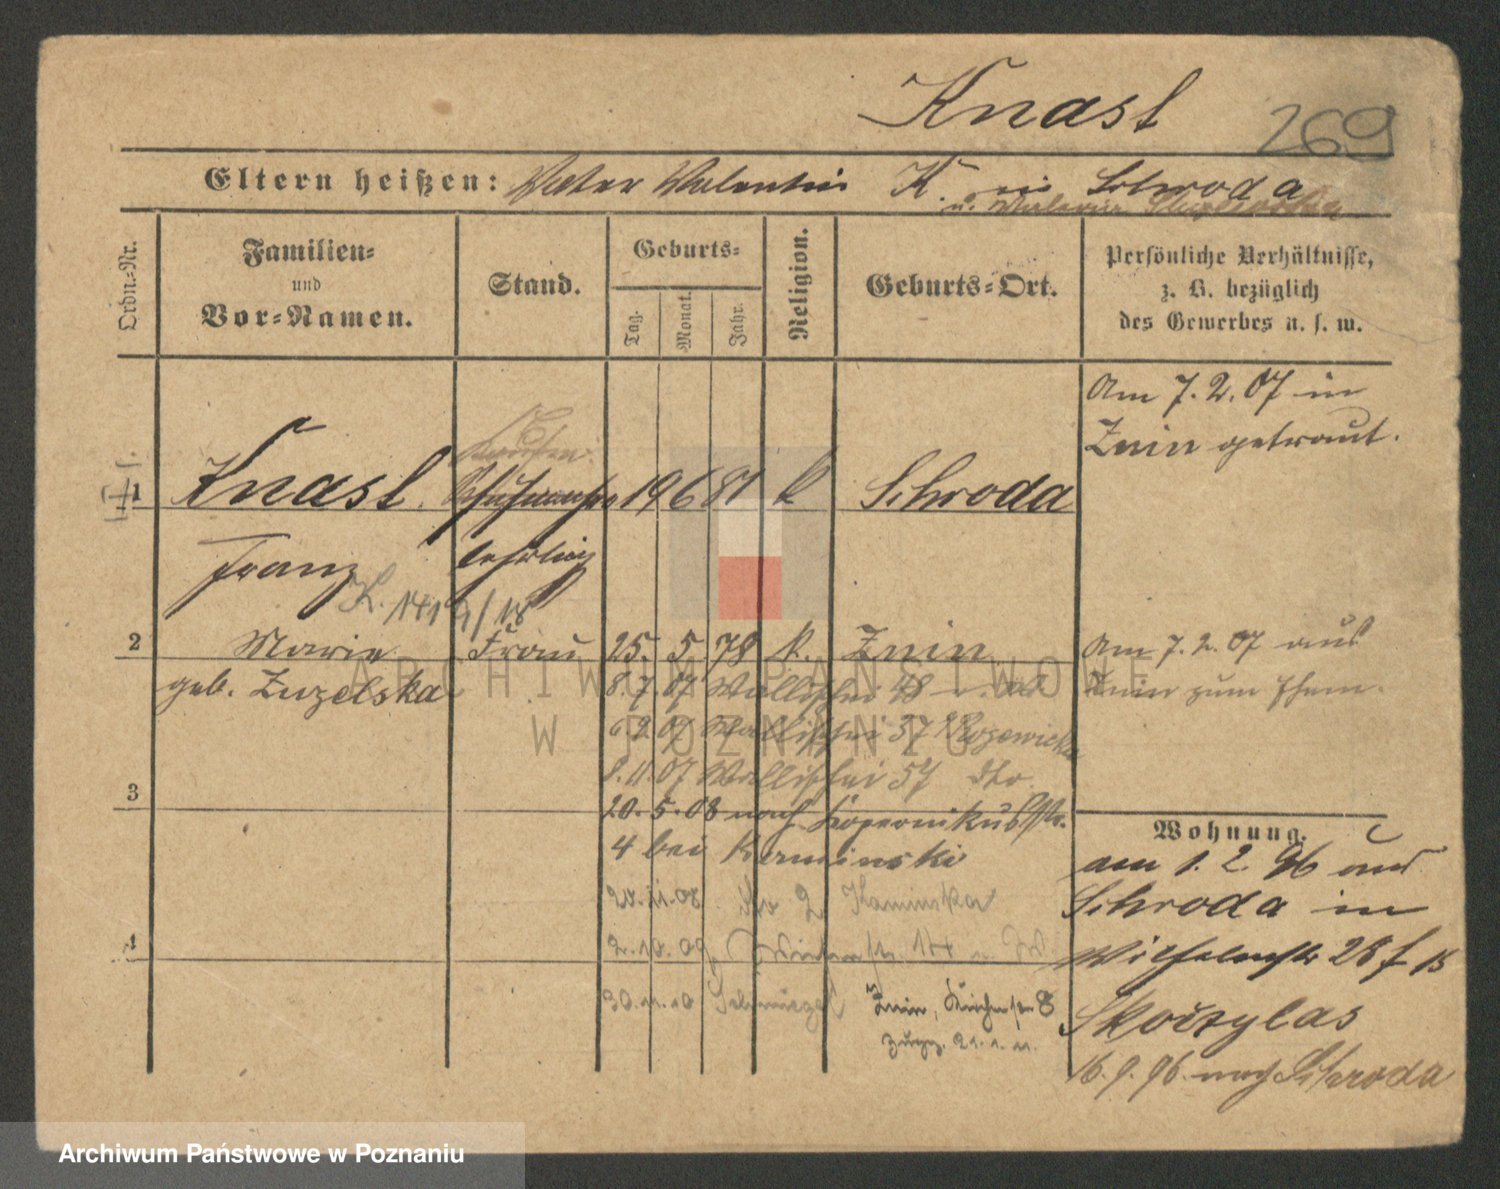 Knast
269
Eltern heißen: Vater Valentin K. in Schroda
u. Valeria
Ordn.-Nr.
Familien-
und
Vor-Namen.
Stand.
Geburts-
Tag.
Monat.
Jahr.
Religion.
Geburts-Ort.
Persönliche Verhältnisse,
z. B. bezüglich
des Gewerbes u. s. w.
Am 7.2.07 in
Znin getraut.
1
Knast
Franz
lehrling
19 6 81 k
Schroda
2
Marie
geb. Zuzelska
Frau
25. 5 78 k.
Znin
Am 7.2.07 aus
Znin zum Ehem.
8.7.07 Wallischei 48
6.9.07 Wallischei 37
8.11.07 Wallischei 57 dto.
3
20.5.08 nach Kopernikusstr.
4 bei Kaminski
20.11.08 dto 2 Kaminska
2.10.09
4
30.11.10
Znin, Kirchenstr 8
zugz. 21.1.11.
Wohnung.
am 1.2.96 aus
Schroda in
Wilhelmstr 28 f 15
Skoczylas
16.9.96 nach Schroda
ARCHIWUM PAŃSTWOWE
W POZNANIU
Archiwum Państwowe w Poznaniu